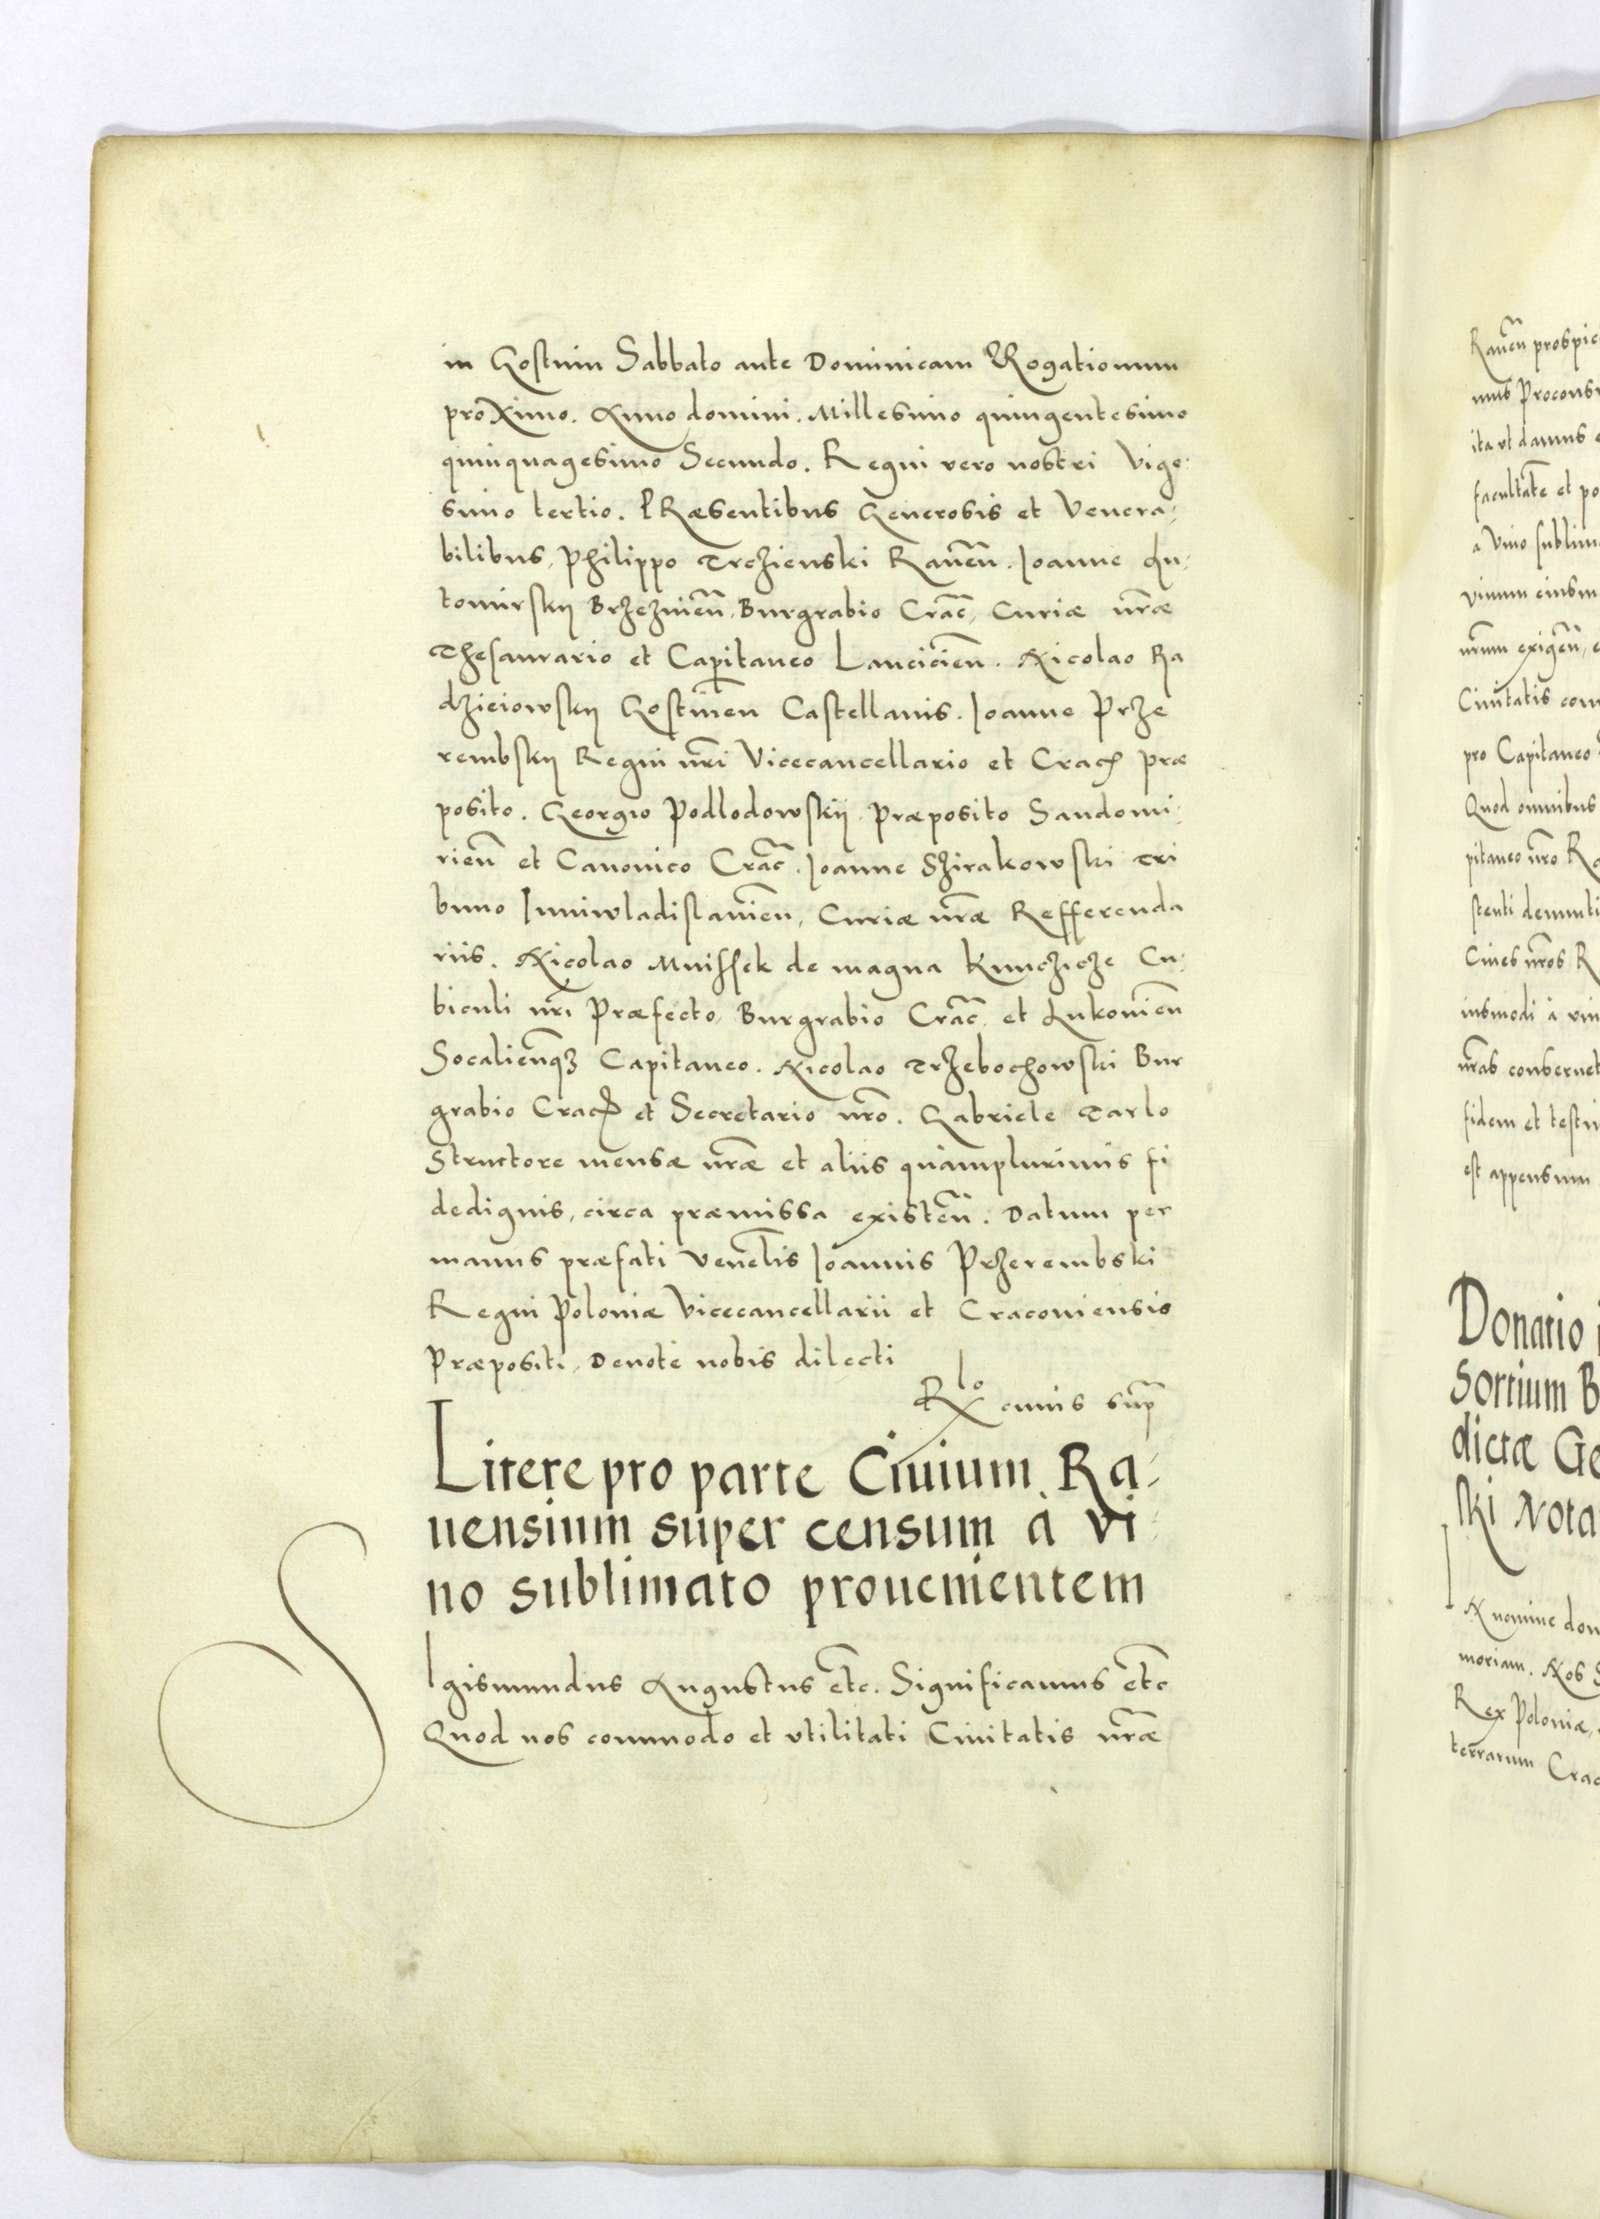 in Gostnin Sabbato ante Dominicam Rogationum
proximo. Anno domini. Millesimo quingentesimo
quinquagesimo Secundo. Regni vero nostri Vige-
simo tertio. PRæsentibus Generosis et Venera-
bilibus, Philippo Trczienski Raueñ. Joanne Lu-
tomirskij Brzezinieñ. Burgrabio Crac̃, Curiæ nr̃æ
Thesaurario et Capitaneo Lancicieñ. Nicolao Ra
dzieiowskij Gostineñ Castellanis. Joanne Prze
rembskij Regni nr̃i Vicecancellario et Crac̃ præ
posito. Georgio Podlodowskij Præposito Sandomi-
rieñ et Canonico Crac̃. Joanne Szirakowski Tri
buno Juniwladislauieñ, Curiæ nr̃æ Refferenda
riis. Nicolao Mnissek de magna Kunczicze Cu-
biculi nr̃i Præfecto, Burgrabio Crac̃ et Lukouieñ
Socalieñq3 Capitaneo. Nicolao Trzebochowski Bur
grabio Crac̃ et Secretario nr̃o. Gabriele Tarlo
Structore mensæ nr̃æ et aliis quamplurimis fi
dedignis, circa præmissa existeñ. Datum per
manus præfati Veneˡlis Joannis Przerembski
Regni Poloniæ Vicecancellarii et Cracouiensis
Præpositi, Deuote nobis dilecti
Rlo cuius sup̃
Litere pro parte Ciuium Ra-
uensium super censum à vi-
no sublimato prouenientem
SIgismundus Augustus etc̃. Significamus etc̃
Quod nos commodo et vtilitati Ciuitatis nr̃æ
Raueñ
mus Procons
ita vt damus
facultatẽ et po
a Vino sublim
vinum eiusm
nr̃um exigeñ,
Ciuitatis com
pro Capitaneo
Quod omnibus
pitaneo nr̃o Ra
stenti denunti
Ciues nr̃os R
iusmodi à vin
nr̃as conseruet
fidem et testi
est appensum
Donatio
Sortium B
dictæ Ge
ski Nota
IN nomine dom
moriam. Nos S
Rex Poloniæ,
terrarum Crac